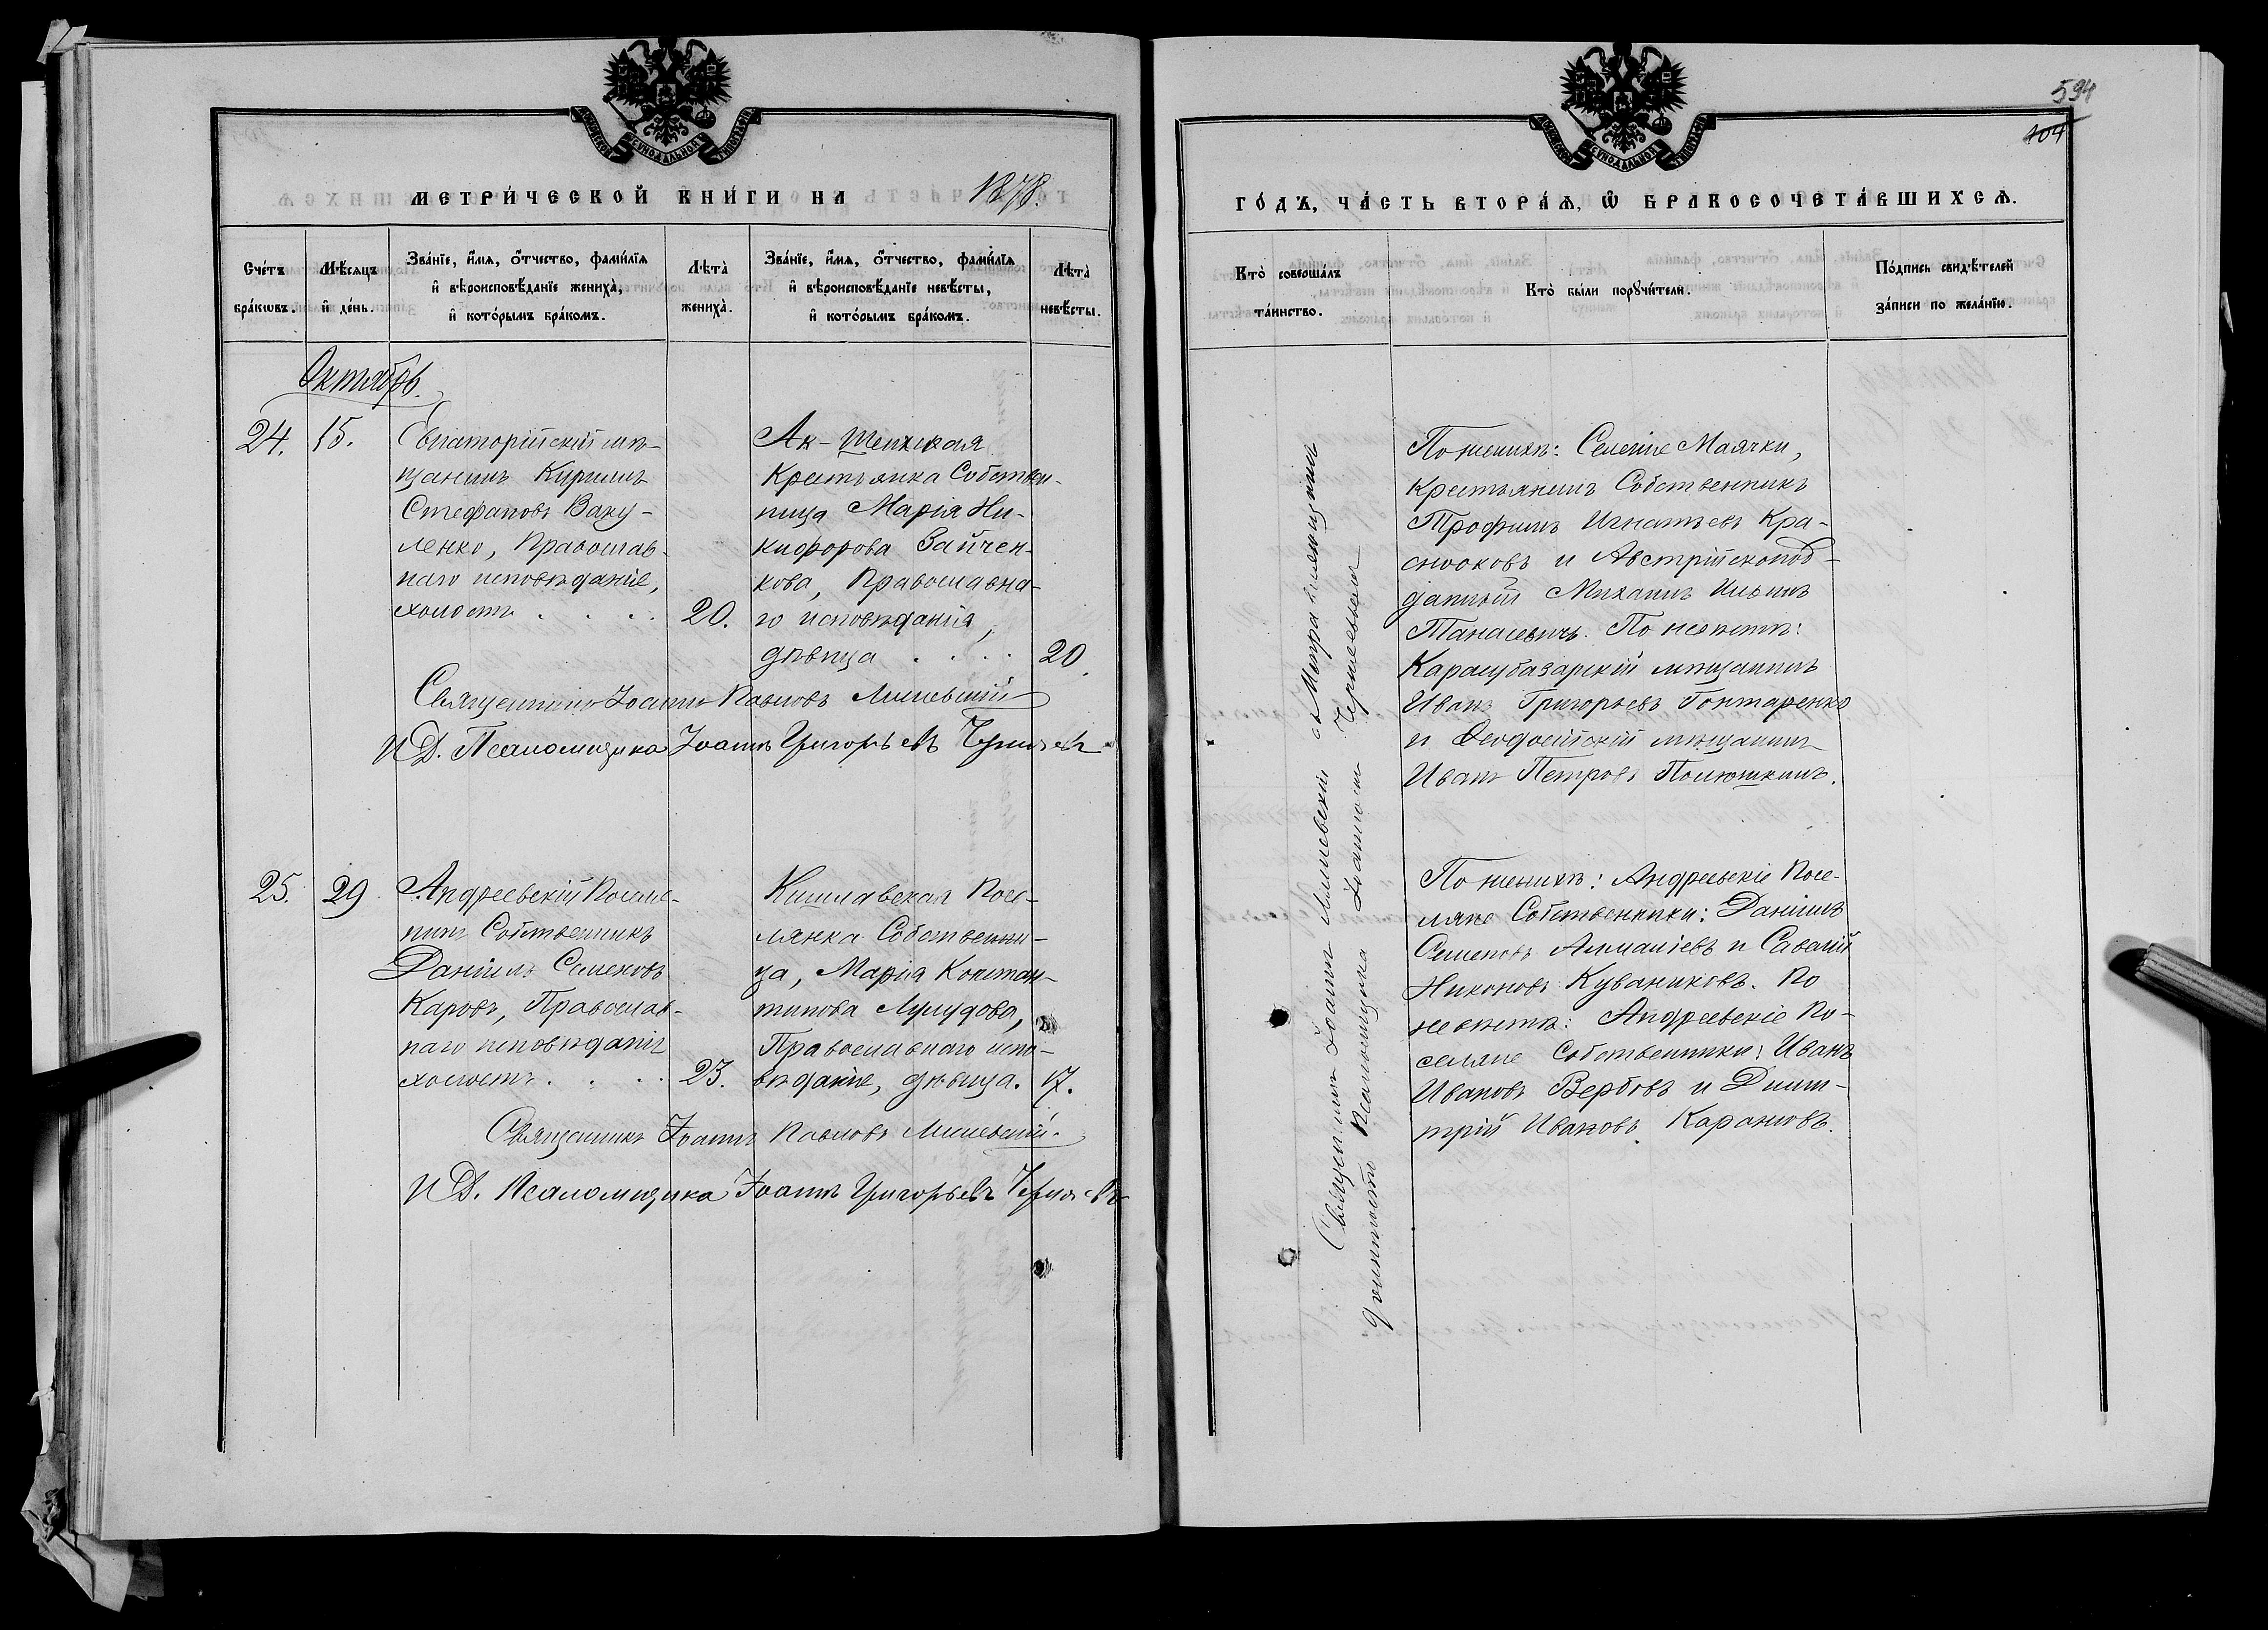 МОСКОВСКОЙ СУНОДАЛЬНОЙ ТИПОГРАФІИ
МЕТРИ́ЧЕСКОЙ КНИ́ГИ НА 1878.
Сче́тъ браковъ.
Мѣ́сяцъ и҆ де́нь.
Зва́нїе, и҆́мя, ѻ҆́тчество, фами́лїя
и҆ вѣроисповѣ́данїе жениха̀,
и҆ кото́рымъ бра́комъ.
Лѣта̀ жениха̀.
Зва́нїе, и҆́мя, ѻ҆́тчество, фами́лїя
и҆ вѣроисповѣ́данїе невѣ́сты,
и҆ кото́рымъ бра́комъ.
Лѣта̀ невѣ́сты.
Октябрь.
24. 15.
Евпаторійскій мѣ-
щанинъ Кириллъ
Стефановъ Ваку-
ленко, Православ-
наго исповѣданіе,
холостъ . . . . 20.
Ак-Шеихская
Крестьянка Собствен-
ница Марія Ни-
кифорова Зайчен-
кова, Православна-
го исповѣданія,
дѣвица . . . . 20.
Священникъ Іоаннъ Павловъ
И Д. Псаломщика Іоаннъ Григорьевъ
25. 29
Андреевскій Поселя-
нинъ Собственникъ
Даніилъ Семеновъ
Каровъ, Православ-
наго исповѣданія
холостъ . . . . 23.
Кишлавская Посе-
лянка Собственни-
ца, Марія Констан-
тинова Лулудова,
Православнаго испо-
вѣданіе, дѣвица. 17.
Священникъ Іоаннъ Павловъ
И Д. Псаломщика Іоаннъ Григорьевъ
594
104
МОСКОВСКОЙ СУНОДАЛЬНОЙ ТИПОГРАФІИ
ГО́ДЪ, ЧА́СТЬ ВТОРА́Ѧ, Ѽ БРАКОСОЧЕТА́ВШИХСѦ.
Кто̀ соверша́лъ
та́инство.
Кто̀ бы́ли порꙋчи́тели.
По́дпись свидѣ́телей
за́писи по жела́нїю.
Священникъ Іоаннъ
Псаломщика Іоанномъ
По женихѣ: Селеніе Маячки,
Крестьянинъ Собственникъ
Трофимъ Игнатьевъ Кра-
снооковъ и Австрійскопод-
данный Михаилъ Ильинъ
Танасевичъ. По невѣстѣ:
Карасубазарскій мѣщанинъ
Иванъ Григорьевъ Гонтаренко
и Ѳеодосійскій мѣщанинъ
Иванъ Петровъ Полюшкинъ.
По женихѣ: Андреевскіе Посе-
ляне Собственники: Даніилъ
Семеновъ Алмаліевъ и Савелій
Никоновъ Куваниковъ. По
невѣстѣ: Андреевскіе По-
селяне Собственники: Иванъ
Ивановъ Вербовъ и Дмит-
трій Ивановъ Карановъ.